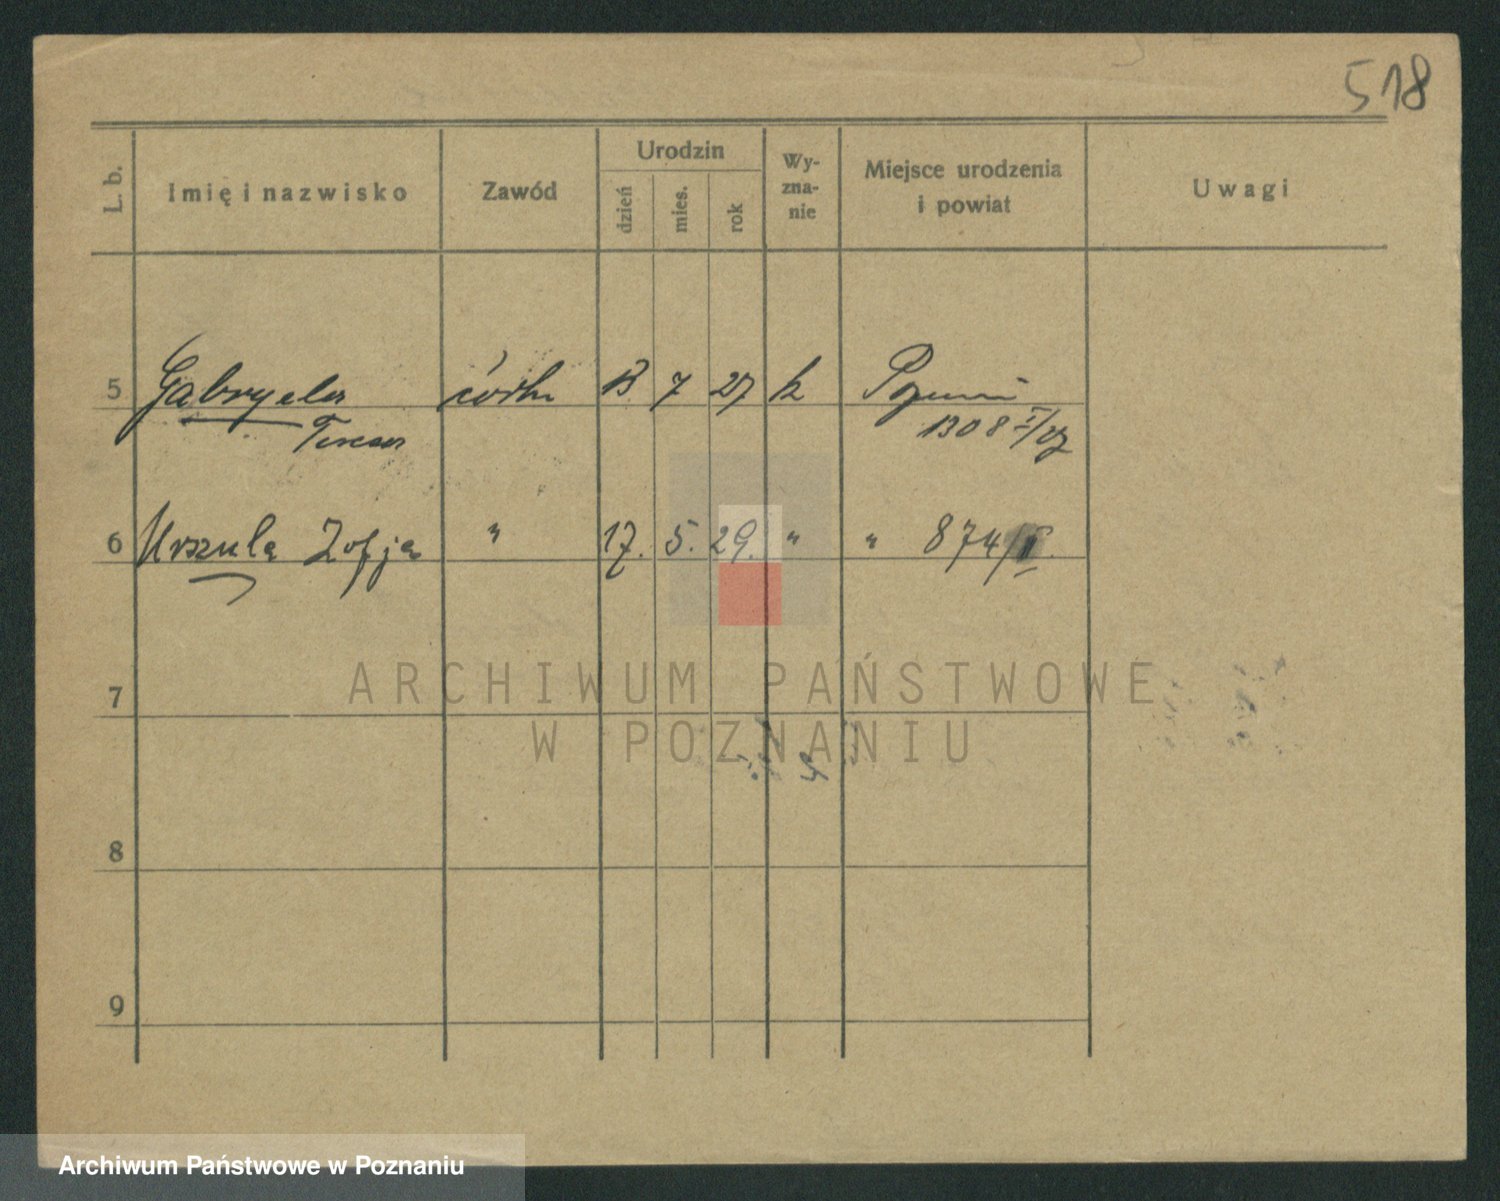 518
L. b. Imię i nazwisko Zawód Urodzin dzień mies. rok Wy-zna-nie Miejsce urodzenia i powiat Uwagi
5 Gabryela córka 13 7 27 k Poznań
Teresa 1308 I/27
6 Urszula Zofja " 17. 5. 29. " " 874/II.
7
ARCHIWUM PAŃSTWOWE
W POZNANIU
8
9
Archiwum Państwowe w Poznaniu